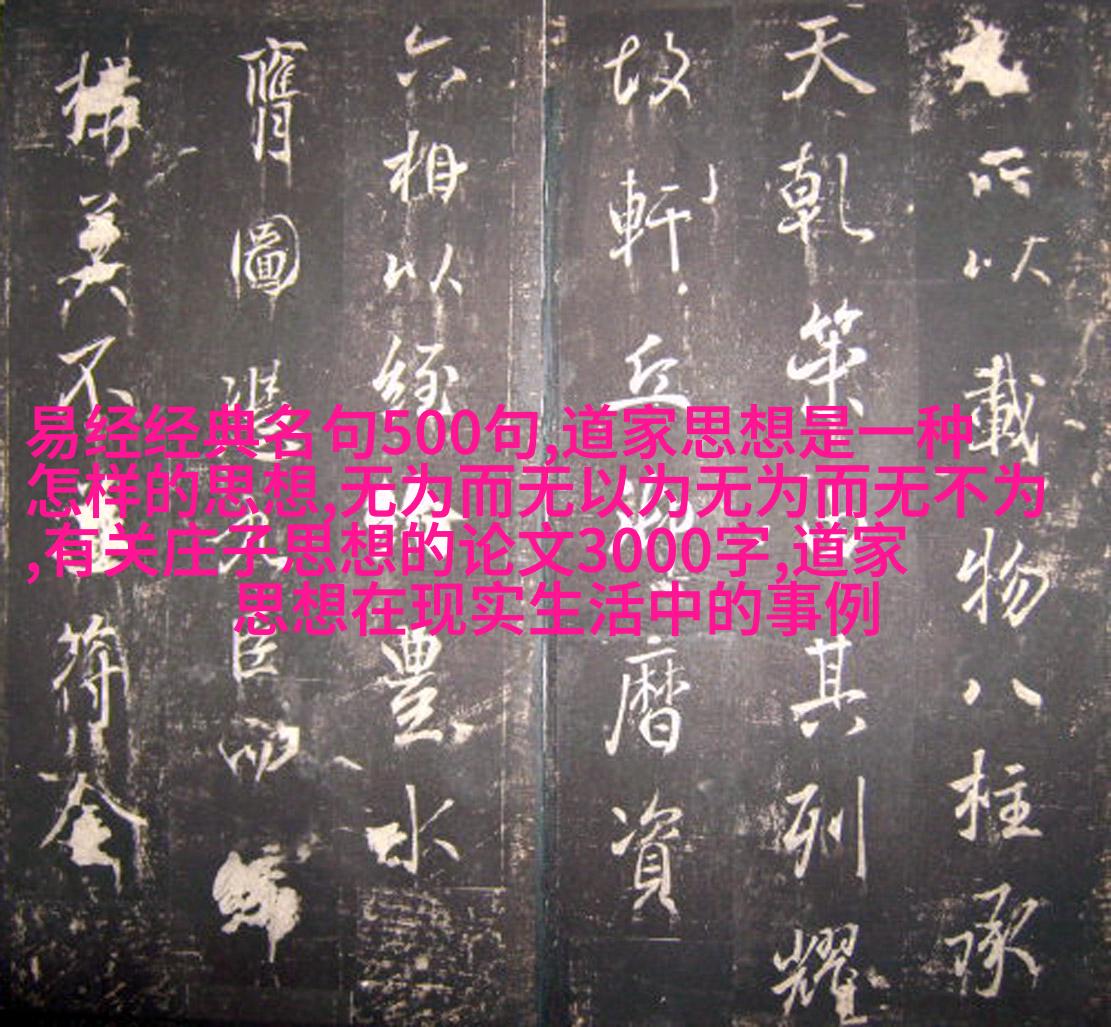 之所以載物八柱承
天乾策其列耀
故軒丘曆資
六相以經豐水
膺圖臣師
構莫不符奎
易经经典名句500句,道家思想是一种
怎样的思想,无为而无以为无为而无不为
,有关庄子思想的论文3000字,道家
思想在现实生活中的事例